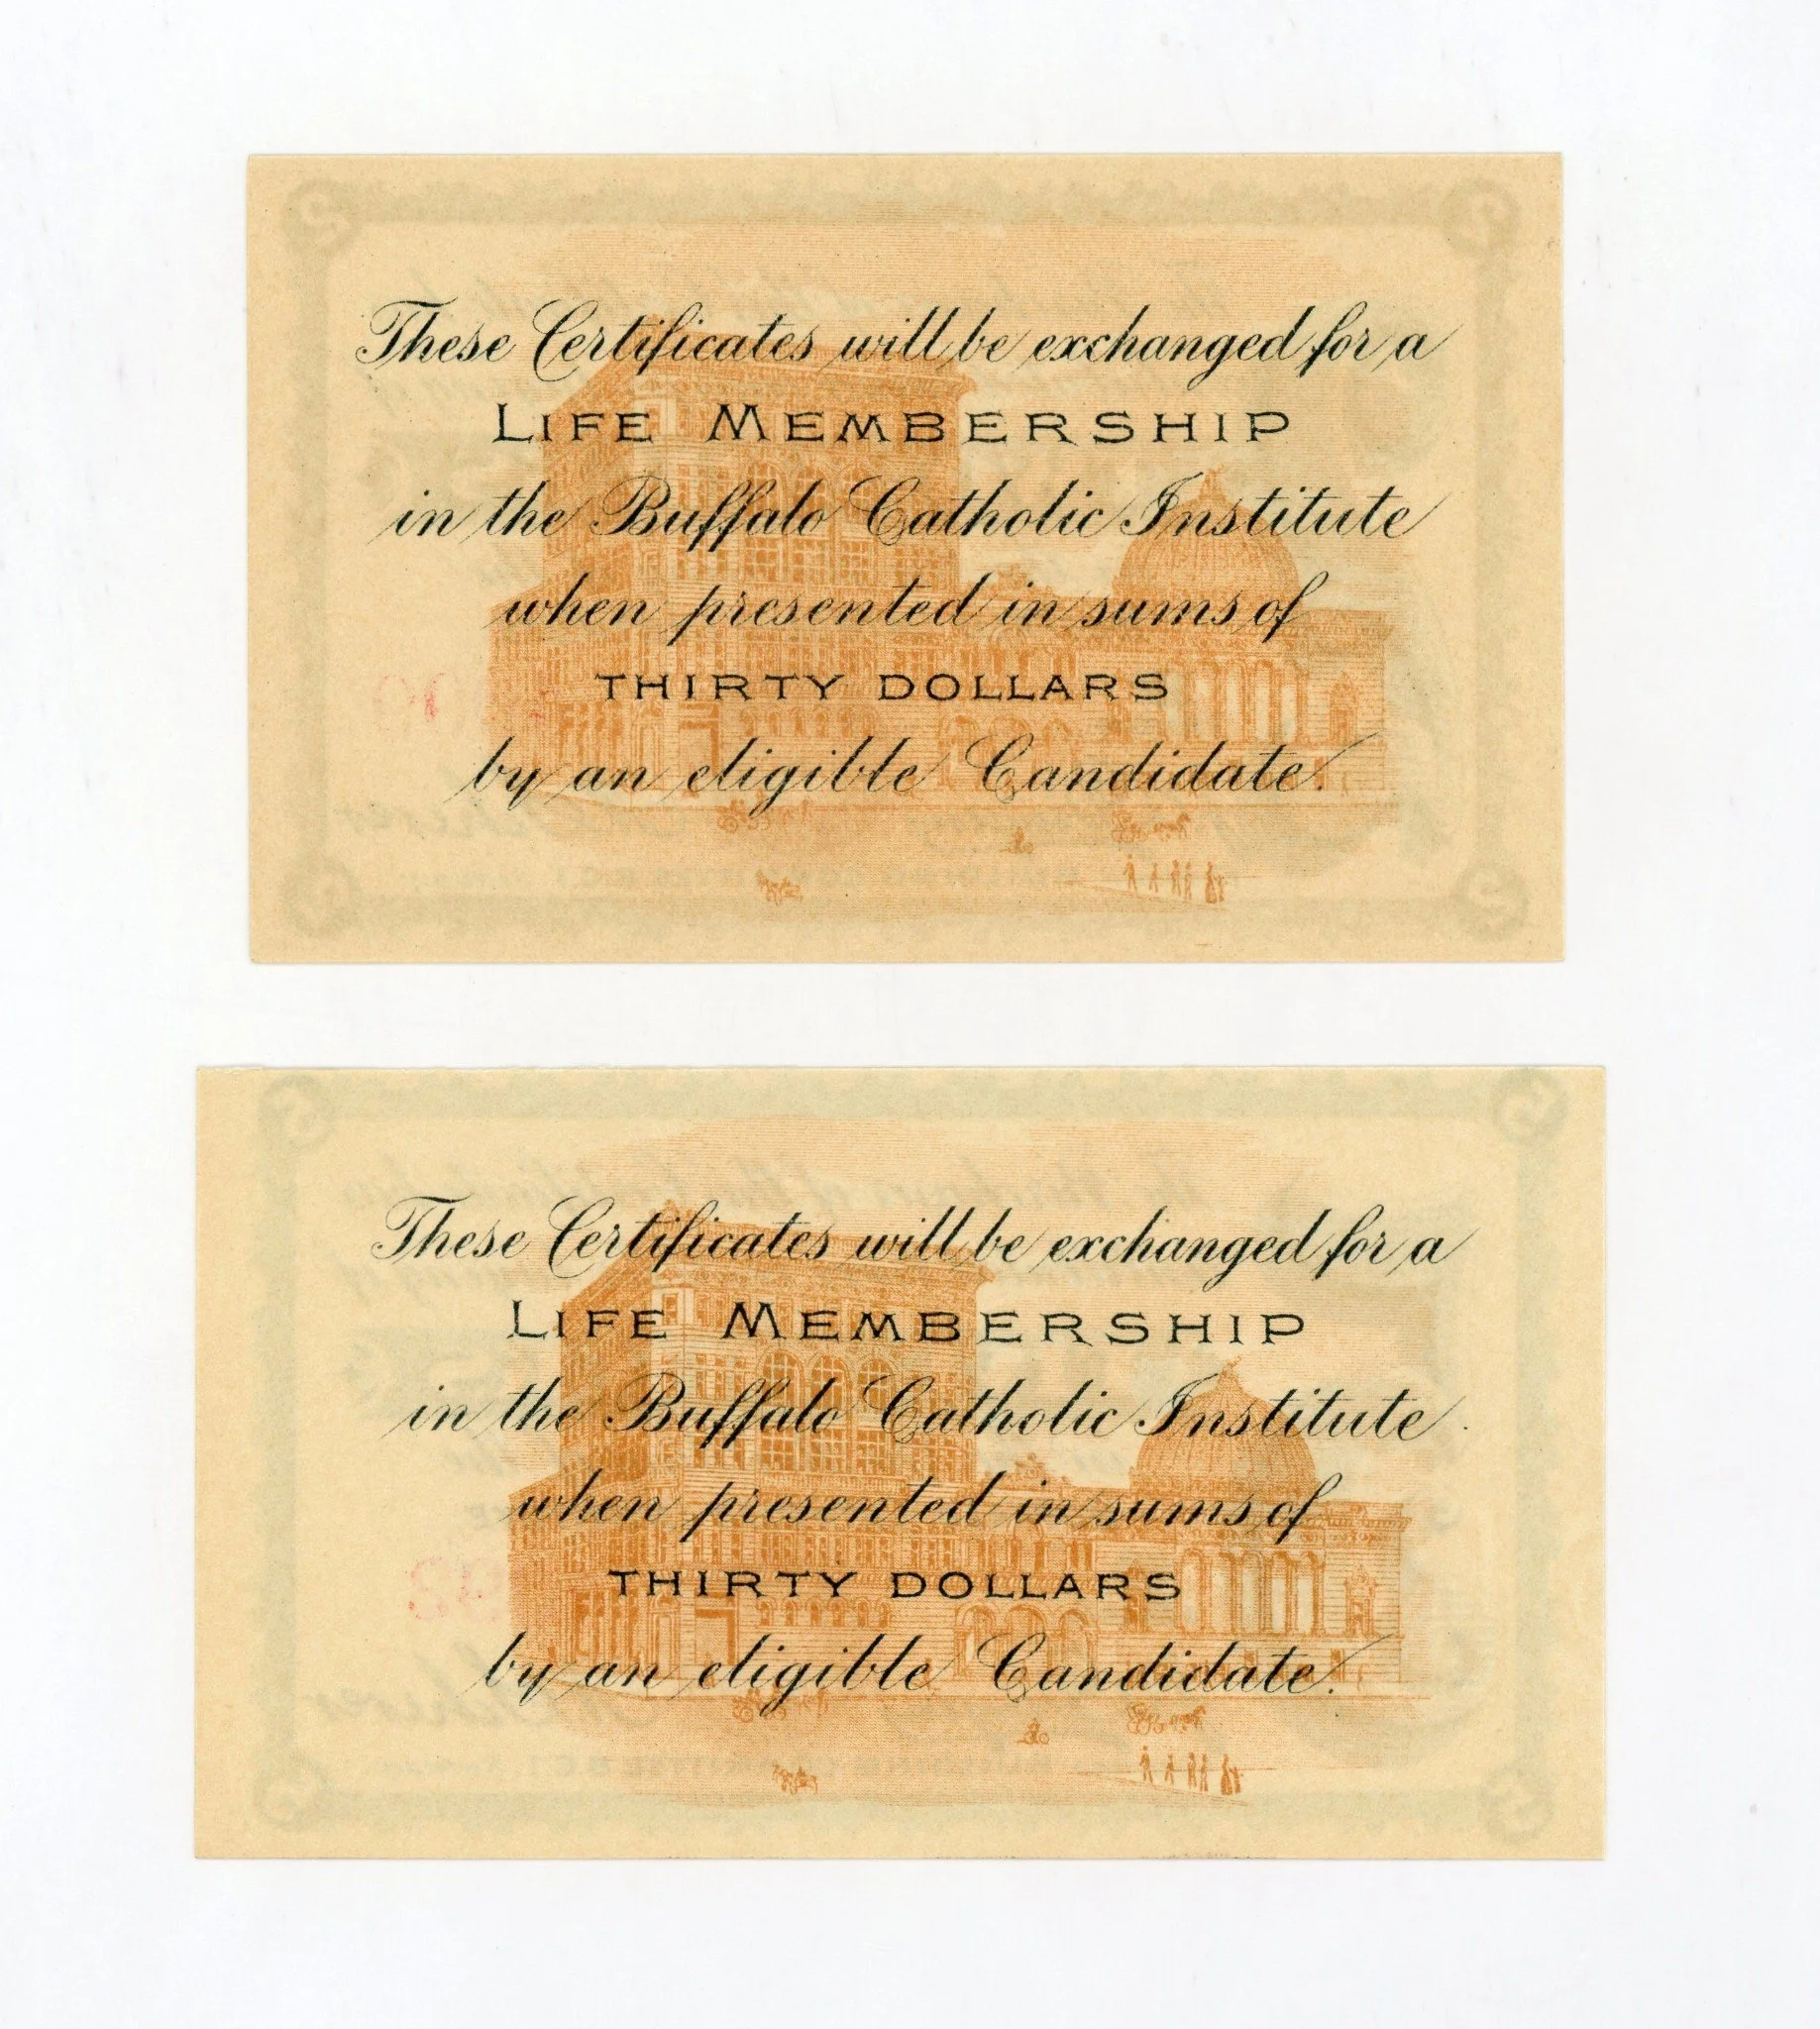 These Certificates will be exchanged for a
LIFE MEMBERSHIP
in the Buffalo Catholic Institute
when presented in sums of
THIRTY DOLLARS
by an eligible Candidate.
These Certificates will be exchanged for a
LIFE MEMBERSHIP
in the Buffalo Catholic Institute
when presented in sums of
THIRTY DOLLARS
by an eligible Candidate.